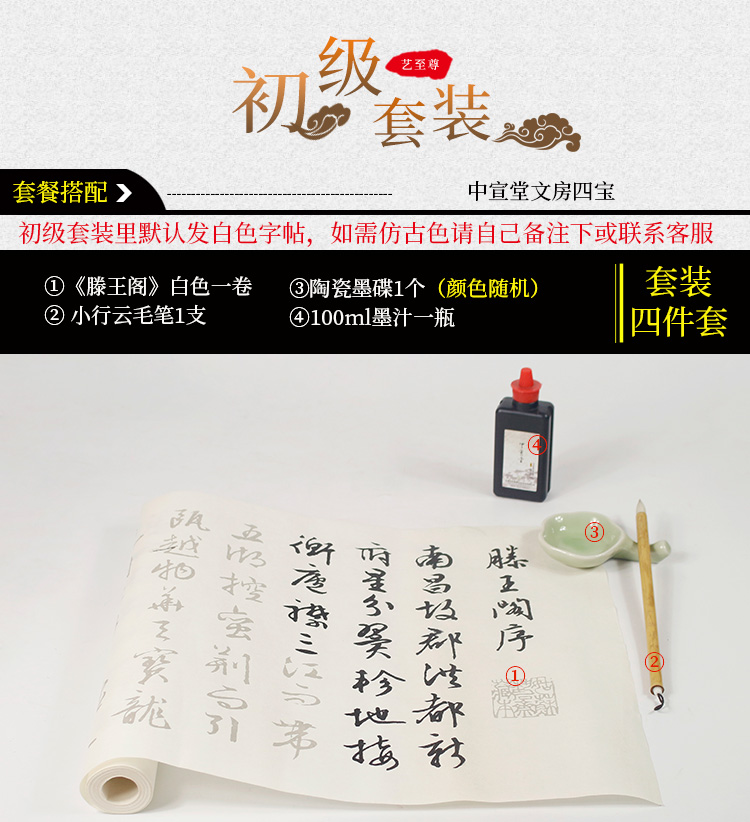 初级套装
艺至尊
套餐搭配
中宣堂文房四宝
初级套装里默认发白色字帖，如需仿古色请自己备注下或联系客服
①《滕王阁》白色一卷
② 小行云毛笔1支
③陶瓷墨碟1个（颜色随机）
④100ml墨汁一瓶
套装
四件套
④
③
②
①
滕王閣序
南昌故郡洪都新
府星分翼軫地接
衡廬襟三江而帶
五湖控蠻荊而引
甌越物華天寶龍